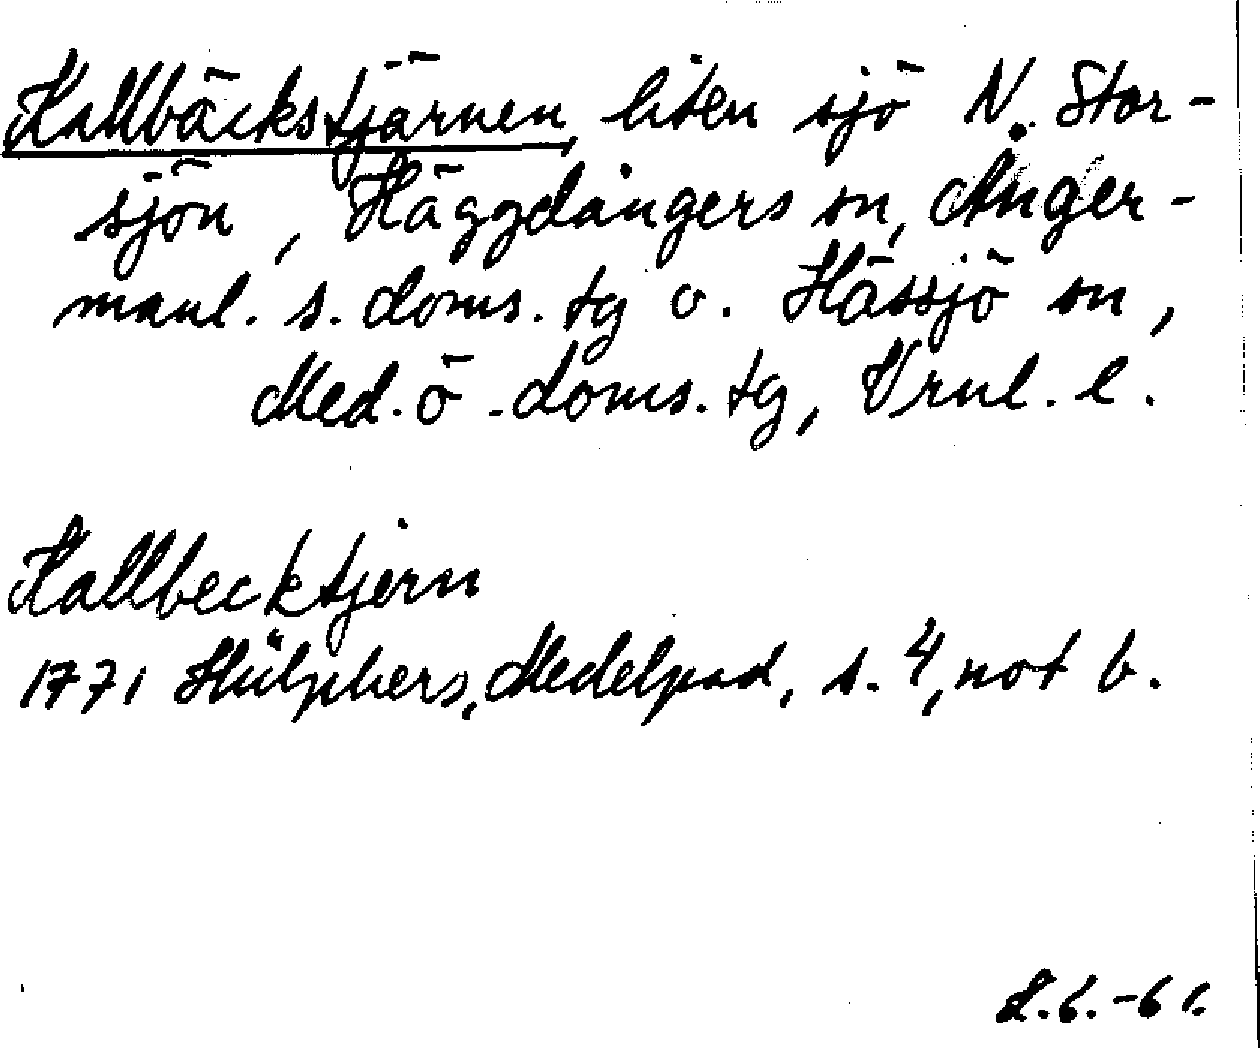 Kallbäckstjärnen, liten sjö N. Stor-
sjön, Häggdångers sn, Ånger-
manl. s. doms. tg o. Hässjö sn,
Med. ö. doms. tg, Vrnl. l.
Kallbecktjern
1771 Hülphers, Medelpad, s. 4, not b.